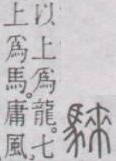 騋
以上爲龍。七
上爲馬。庸風